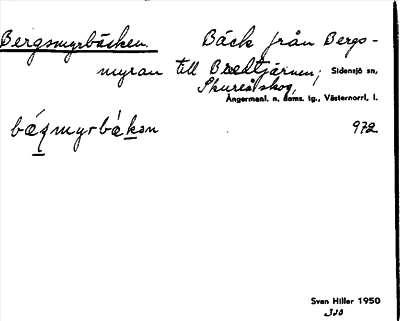 Bergsmyrbäcken. Bäck från Bergs-
myran till Bredtjärnen; Sidensjö sn,
Skureåskog,
Ångermanl. n. doms. tg., Västernorrl. l.
bǽqmyrbἀkən 972
Sven Hiller 1950
310